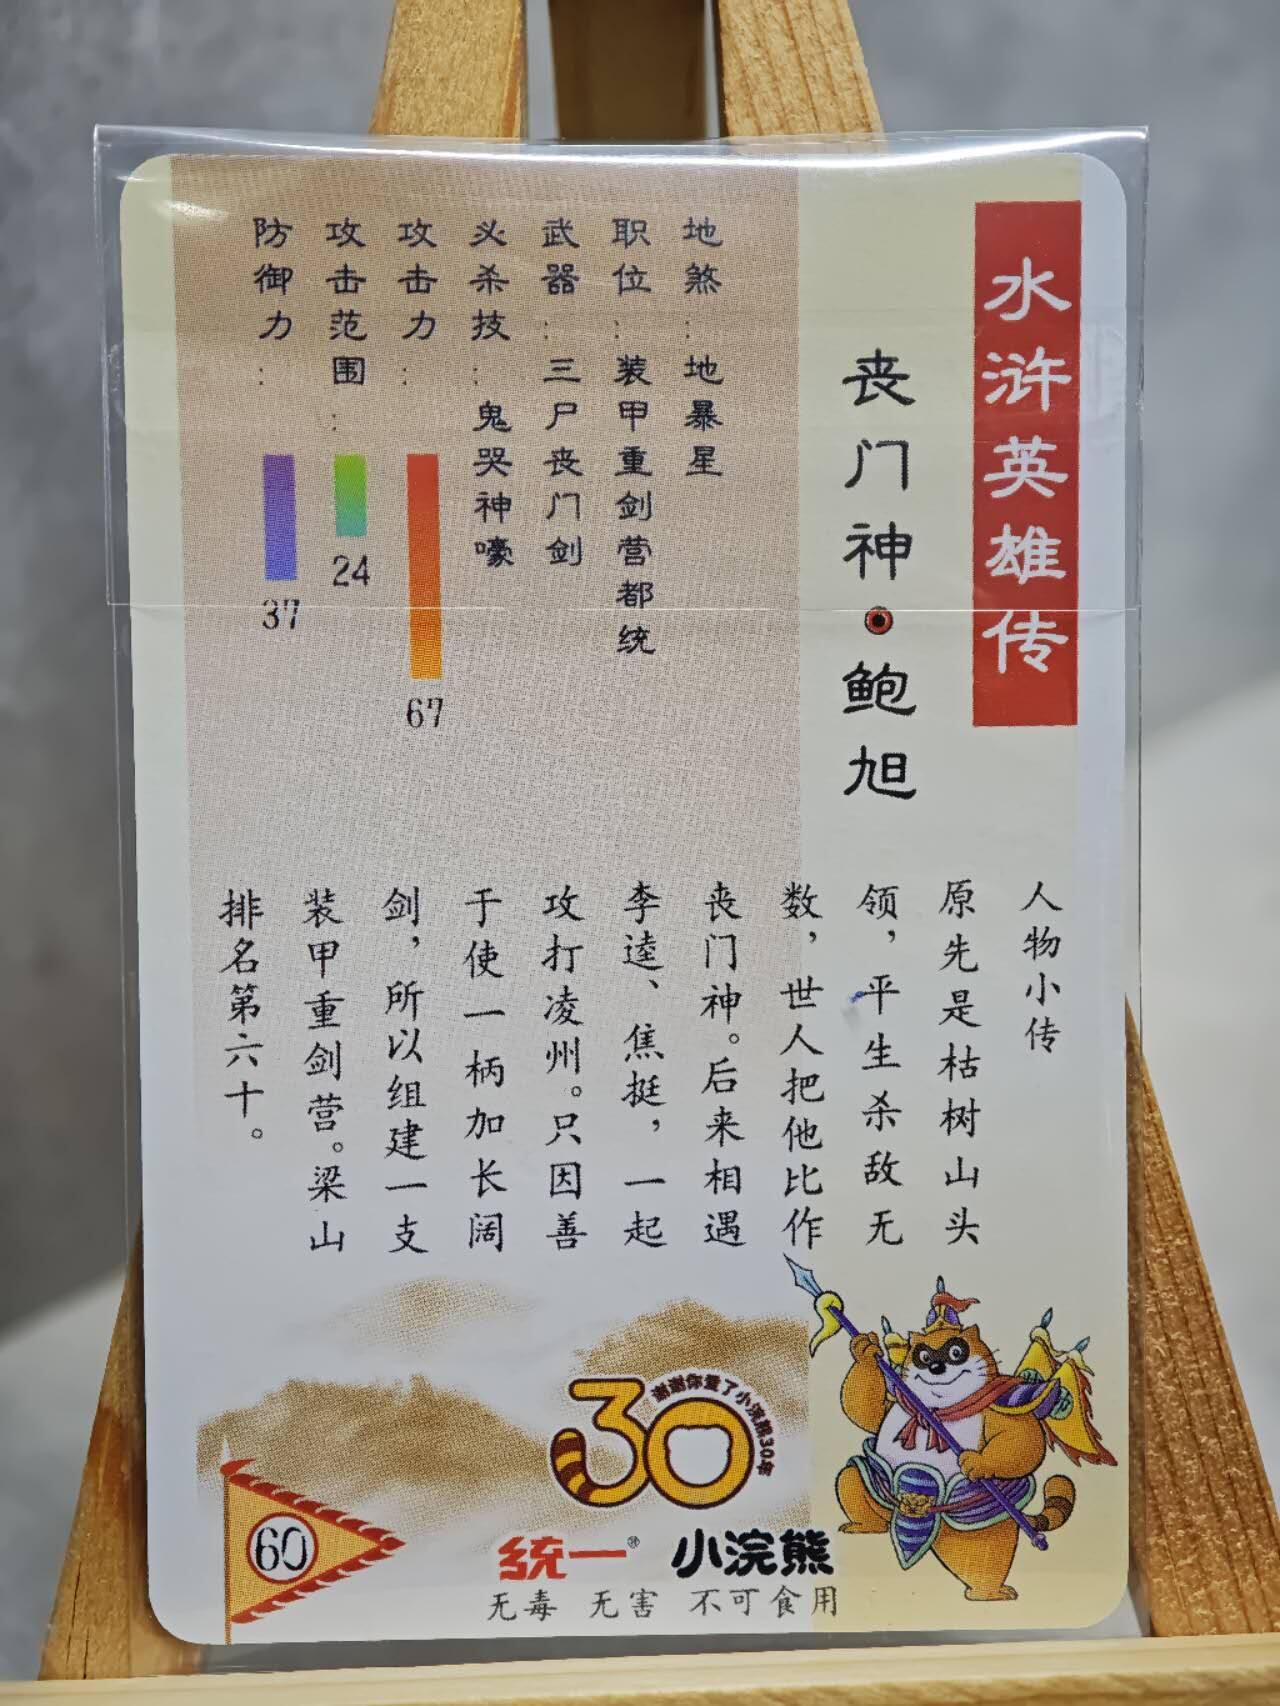 水浒英雄传
丧门神·鲍旭
地煞：地暴星
职位：装甲重剑营都统
武器：三尸丧门剑
必杀技：鬼哭神嚎
攻击力：
67
攻击范围：
24
防御力：
37
人物小传
原先是枯树山头
领，平生杀敌无
数，世人把他比作
丧门神。后来相遇
李逵、焦挺，一起
攻打凌州。只因善
于使一柄加长阔
剑，所以组建一支
装甲重剑营。梁山
排名第六十。
谢谢你爱了小浣熊30年
30
60
统一® 小浣熊
无毒 无害 不可食用